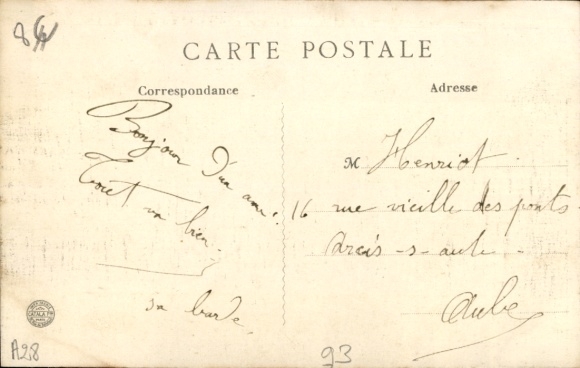 CARTE POSTALE
Correspondance
Adresse
Bonjour d'un ami.
Tout va bien.
M Henriot.
16 rue vieille des ponts
Arcis-s-aube
Aube
A28
93